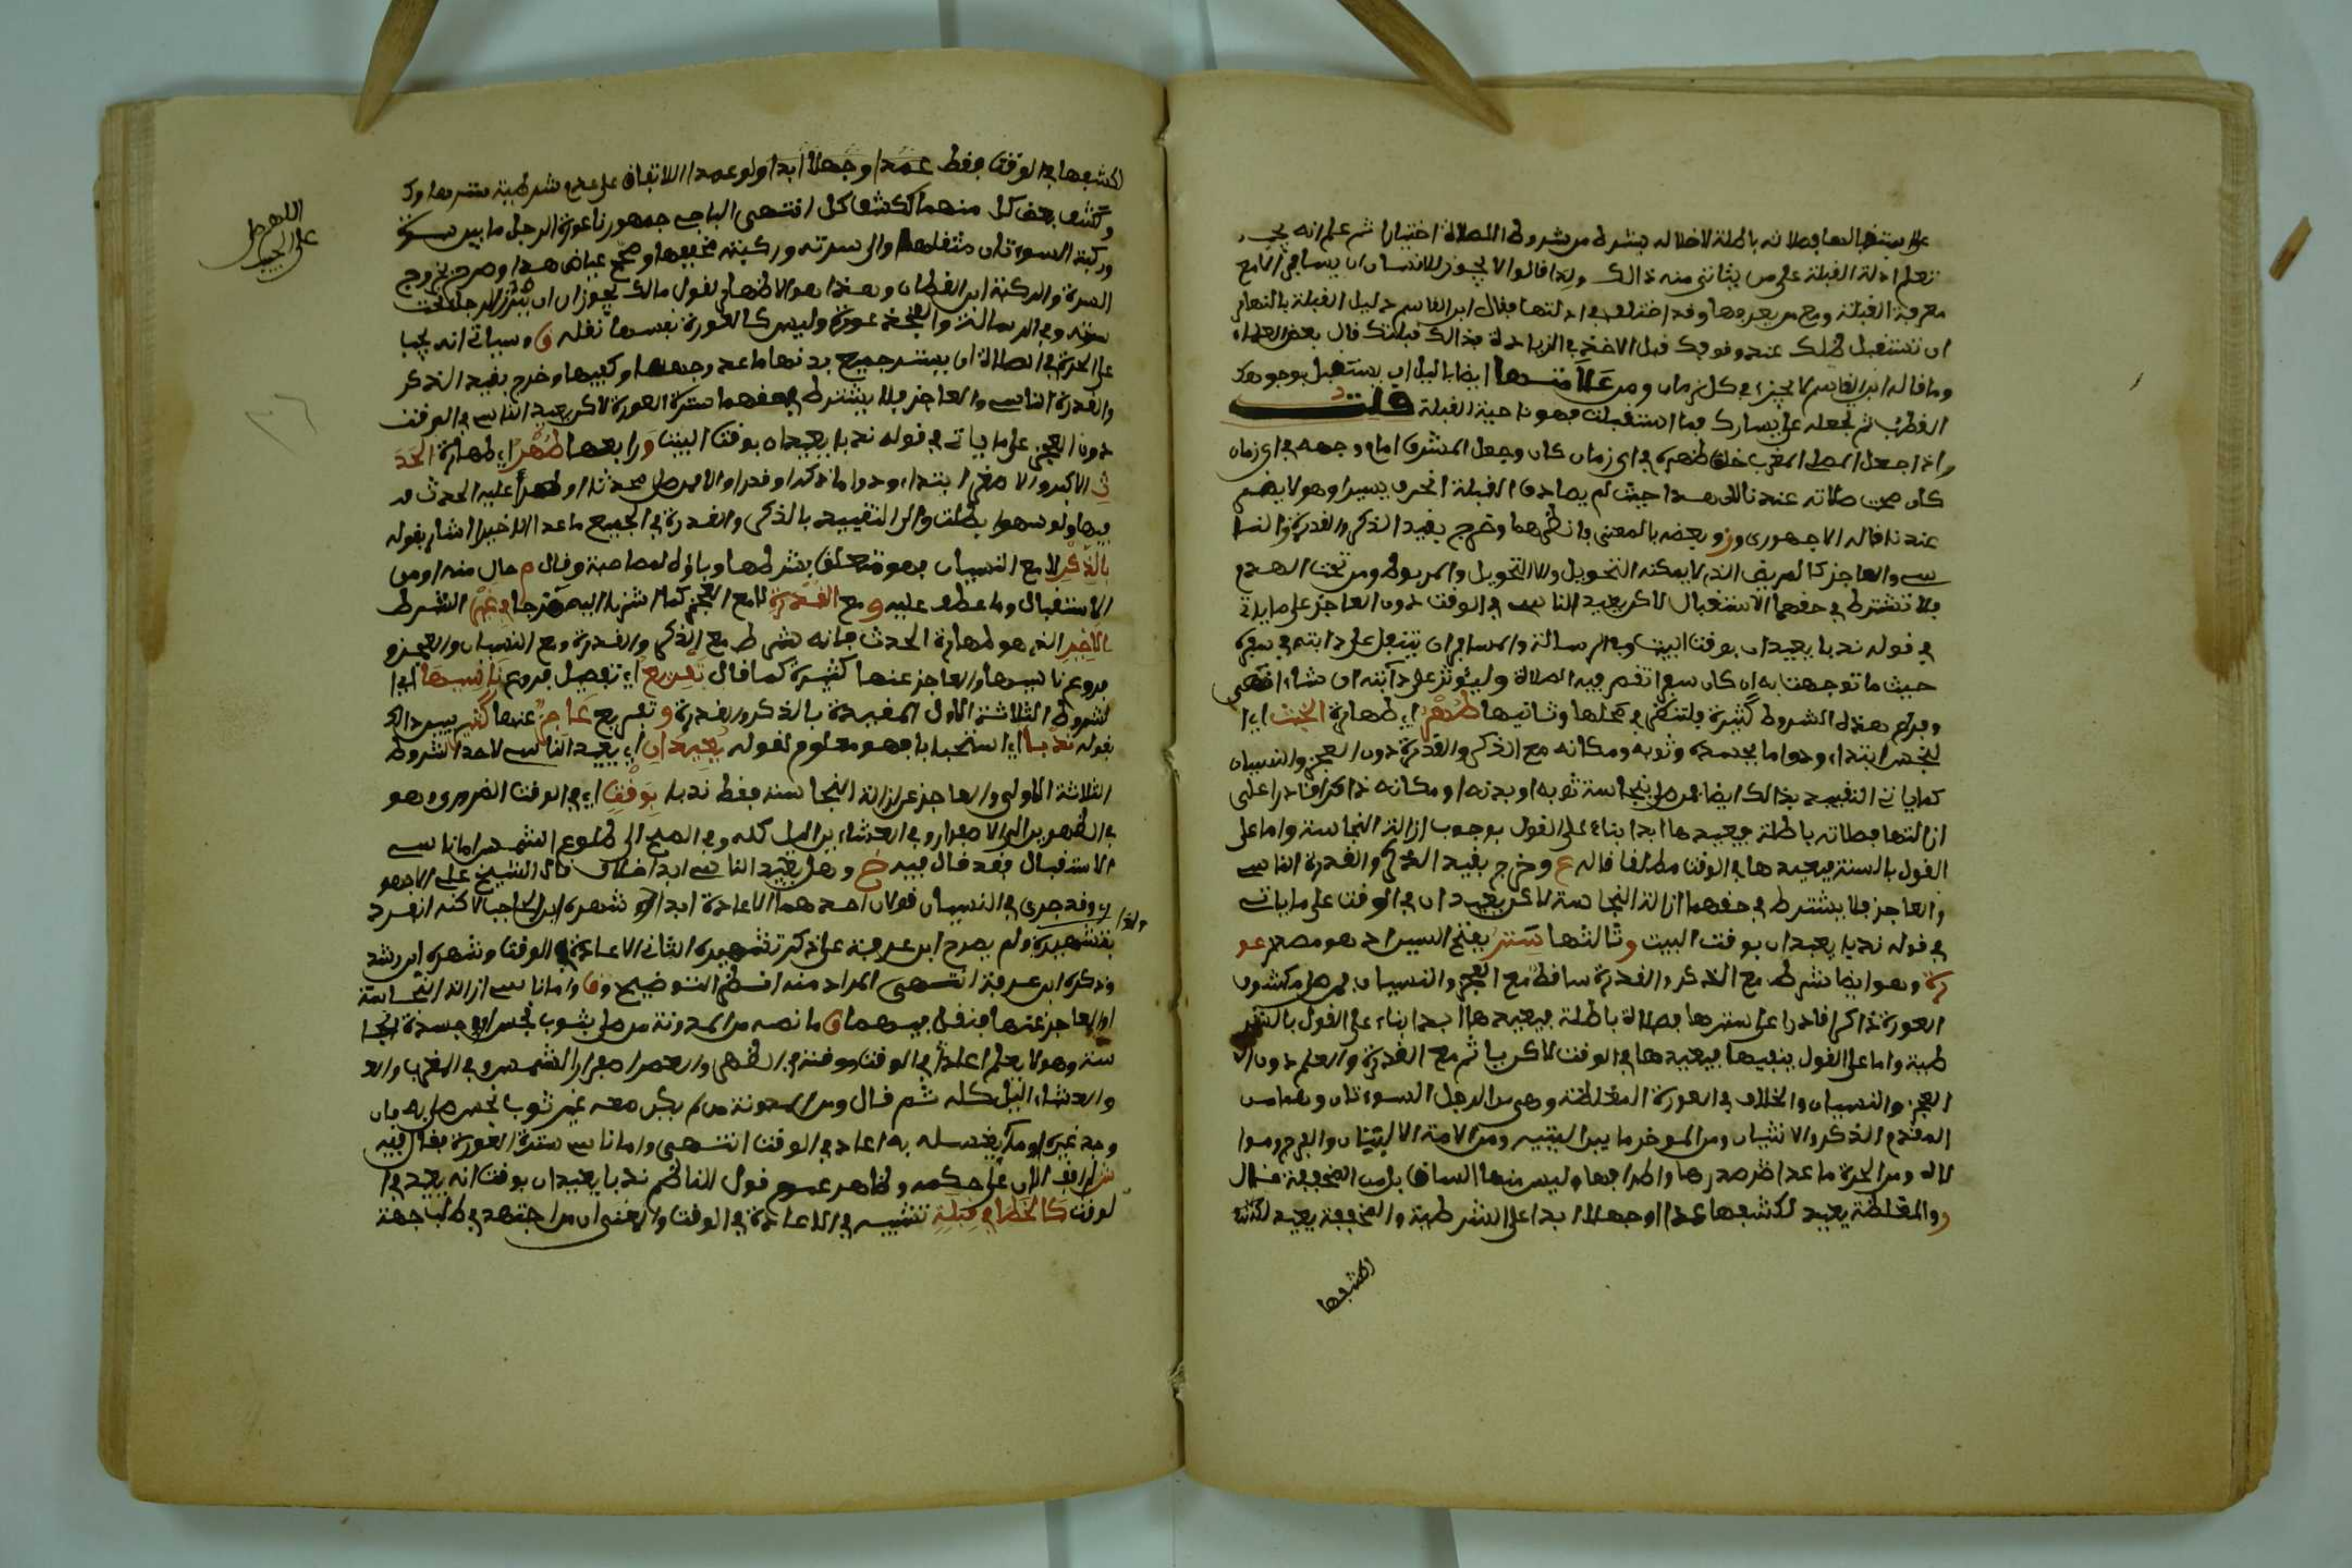 على استقبالها فصلاته باطلة لاخلاله بشرط من شروط الصلاة اختيارا ثم علم انه يجب
تعلم ادلة القبلة على من يتاتى منه ذالك ولذا قالوا لا يجوز للانسان ان يسافر الا مع
معرفة القبلة ومع من يعرفها وقد اختلف في ادلتها فقال ابن القاسم دليل القبلة بالنهار
ان تستقبل ظلك عند وقوفك قبل الاخذ في الزيادة فذالك قبلتك قال بعض العلماء
وما قاله ابن القاسم لا يجزئ في كل زمان ومن علامتها ايضا بالليل ان يستقبل بوجهك
القطب ثم تجعله على يسارك فما استقبلت فهو ناحية القبلة قلت
واذا جعل المصلي المغرب خلف ظهره في اي زمان كان وجعل المشرق امام وجهه في اي زمان
كان صحت صلاته عندنا لان هذا حيث لم يصادف القبلة انحرف يسيرا وهو لا يضر
عندنا قاله الاجهوري وز وبعضه بالمعنى وانظرهما وخرج بقيد الذكر والقدرة النا
سي والعاجز كالمريض الذي لا يمكنه التحويل ولا التحول والمربوط ومن تحت الهدم
فلا تشترط في حقهما الاستقبال لاكن يعيد الناسي في الوقت دون العاجز على ما ياتي
في قوله ندبا يعيدان بوقت البيت وفي الرسالة والمسافر ان يتنفل على دابته في سفره
حيث ما توجهت به ان كان سفرا تقصر فيه الصلاة وليوتر على دابته ان شاء انتهى
وفروع هذه الشروط كثيرة فلتنظر في محلها وثانيها طهر اي طهارة الخبث اي ا
لنجس ابتداء ودواما بجسده وثوبه ومكانه مع الذكر والقدرة دون العجز والنسيان
كما ياتي التقييد بذالك ايضا فمن صلى بنجاسة ثوبه او بدنه او مكانه ذاكرا قادرا على
ازالتها فصلاته باطلة فيعيدها ابدا بناء على القول بوجوب ازالة النجاسة واما على
القول بالسنة فيعيدها في الوقت مطلقا قاله ع وخرج بقيد الذكر والقدرة الناسي
والعاجز فلا يشترط في حقهما ازالة النجاسة لاكن يعيدان في الوقت على ما ياتي
في قوله ندبا يعيدان بوقت البيت وثالثها ستر بفتح السين اذ هو مصدر عو
رة وهو ايضا شرط مع الذكر والقدرة ساقط مع العجز والنسيان فمن صلى مكشوف
العورة ذاكرا قادرا على سترها فصلاة باطلة فيعيدها ابدا بناء على القول بالشر
طية واما على القول بنفيها فيعيدها في الوقت لاكن ياثم مع القدرة والعلم دون ا
العجز والنسيان والخلاف في العورة المغلظة وهي من الرجل السوءتان وهما من
المقدم الذكر والانثيان ومن الموخر ما بين اليتيه ومن الامة الاليتان والفرج وموا
لاه ومن الحرة ما عدا صدرها واطرافها وليس منها الساق بل من المخففة قال
د والمغلظة يعيد لكشفها عمدا او جهلا ابدا على الشرطية والمخففة يعيد
لكشفها
لكشفها في الوقت فقط عمدا وجهلا ابدا ولو عمدا للاتفاق على عدم شرطية سترها وك
وكشف بعض كل منهما ككشف كل انتهى الباجي جمهورنا عورة الرجل ما بين سرته
وركبته السوءتان مثقلها والى سرته وركبته مخففها وصحح عياض هذا وصرح بخروج
السرة والركبة ابن القطان وهذا هو الاظهر لقول مالك يجوز ان ياتزر الرجل تحت
سرته وفي الرسالة والفخذ عورة وليس كالعورة نفسها نقله ق وسياتي انه يجب
على الحرة في الصلاة ان يستر جميع بدنها ما عدا وجهها وكفيها وخرج بقيد الذكر
والقدرة الناسي والعاجز فلا يشترط في حقهما سترة العورة لاكن يعيد الناسي في الوقت
دون العجز على ما ياتي في قوله ندبا يعيدان بوقت البيت ورابعها طهر اي طهارة الحد
ث الاكبر والاصغر ابتداء ودواما ذكرا وقدر او لا فمن صلى محدثا او طرأ عليه الحدث
فيها ولو سهوا بطلت والى التقييد بالذكر والقدرة في الجميع ما عدا الاخير اشار بقوله
بالذكر لا مع النسيان فهو متعلق بشرطها وباؤه لمصاحبة وقال م حال منه او من
الاستقبال وما عطف عليه ومع القدرة لا مع العجز كما اشرنا اليه في غير الشرط
بالاخير الذي هو طهارة الحدث فانه شرط مع الذكر والقدرة ومع النسيان والعجز و
فروع ناسيها والعاجز عنها كثيرة كما قال تفريع اي تفصيل فروع ناسيها اي ا
لشروط الثلاثة الاول المقيدة بالذكر والقدرة وتفريع عاجز عنها كثير
بقوله ندبا اي استحبابا فهو معلوم لقوله يعيدان اي يعيد الناسي لاحد الشروط
الثلاثة الاولى والعاجز عن ازالة النجاسة فقط ندبا بوقت اي في الوقت الضروري وهو
في الظهرين الى الاصفرار وفي العشاءين الليل كله وفي الصبح الى طلوع الشمس اما ناسي
الاستقبال فقد قال فيه خ وهل يعيد الناسي ابدا خلاف قال الشيخ علي الاجهو
ري وقد جرى في النسيان قولان احدهما الاعادة ابدا شهره ابن الحاجب لاكنه انفرد
بتشهيره ولم يصرح ابن عرفة على ذكر تشهيره الثاني الاعادة في الوقت وشهره ابن رشد
وذكره ابن عرفة انتهى المراد منه انظر التوضيح وق واما ناسي ازالة النجاسة
او العاجز عنها فنقل فيهما ق ما نصه من المدونة من صلى بثوب نجس او في جسده نجا
سة وهو لا يعلم اعاد في الوقت ووقته في الظهر والعصر اصفرار الشمس وفي المغرب والع
والعشاء الليل كله ثم قال ومن المدونة من لم يكن معه غير ثوب نجس صلى به فان
وجد غيره او ما يغسله به اعاد في الوقت انتهى واما ناسي سترة العورة فقال فيه
على حكمه وظاهر عموم قول الناظم ندبا يعيدان بوقت انه يعيد في ا
لوقت كالخطإ في قبلة تشبيه في الاعادة في الوقت والمعنى ان من اجتهد في طلب جهة
اللهم صل
على الحبيب